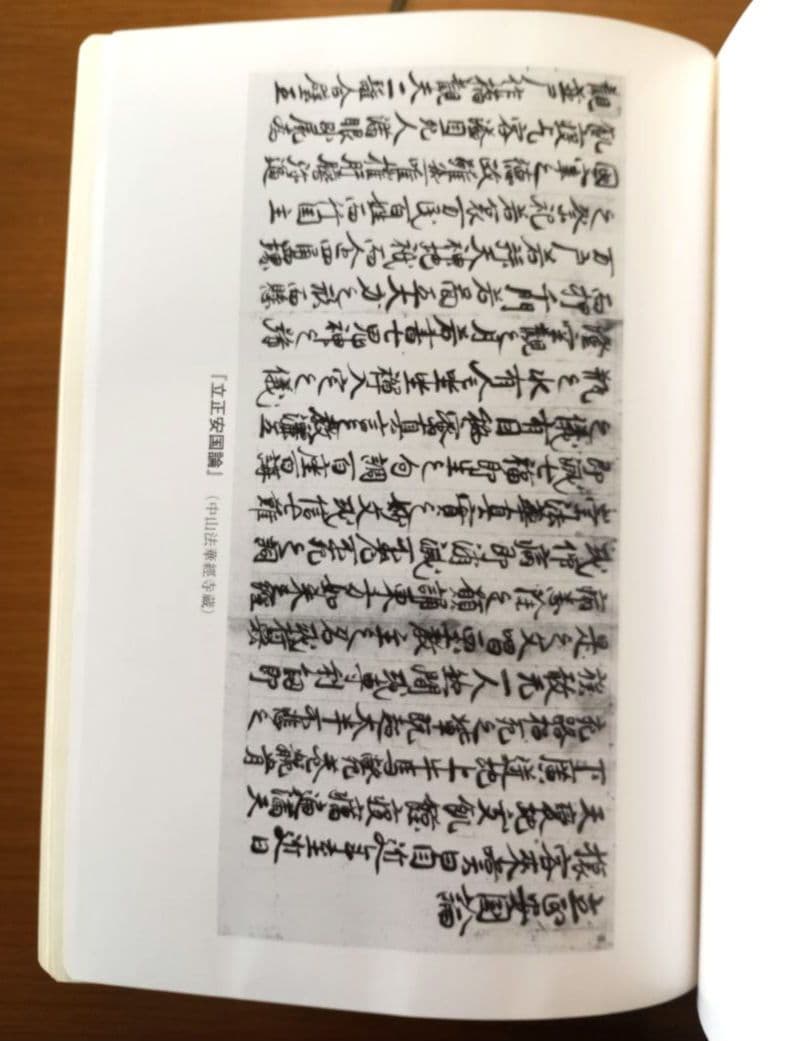 立正安国論
旅客来嘆曰自近年至近日
天変地夭飢饉疫癘遍満天
下広迸地上牛馬斃巷骸骨
充路招死之輩既超大半不悲之
族敢无一人然間或専利剣即
是之文唱西土教主之名或恃衆
病悉除之願誦東方如来之経
或仰病即消滅不老不死之詞
崇法華真実之妙文或信七難
即滅七福即生之句調百座百講
之儀有因秘密真言之教灑五
瓶之水有全坐禅入定之儀
澄空観之月若書七鬼神之号
而押千門若図五大力之形而懸
万戸若拝天神地祇而企四角四堺
之祭祀若哀万民百姓而行国主
国宰之徳政雖然唯摧肝胆弥逼
飢疫乞客溢目死人満眼臥屍為
観並尸作橋観夫二離合璧五
『立正安国論』（中山法華経寺蔵）